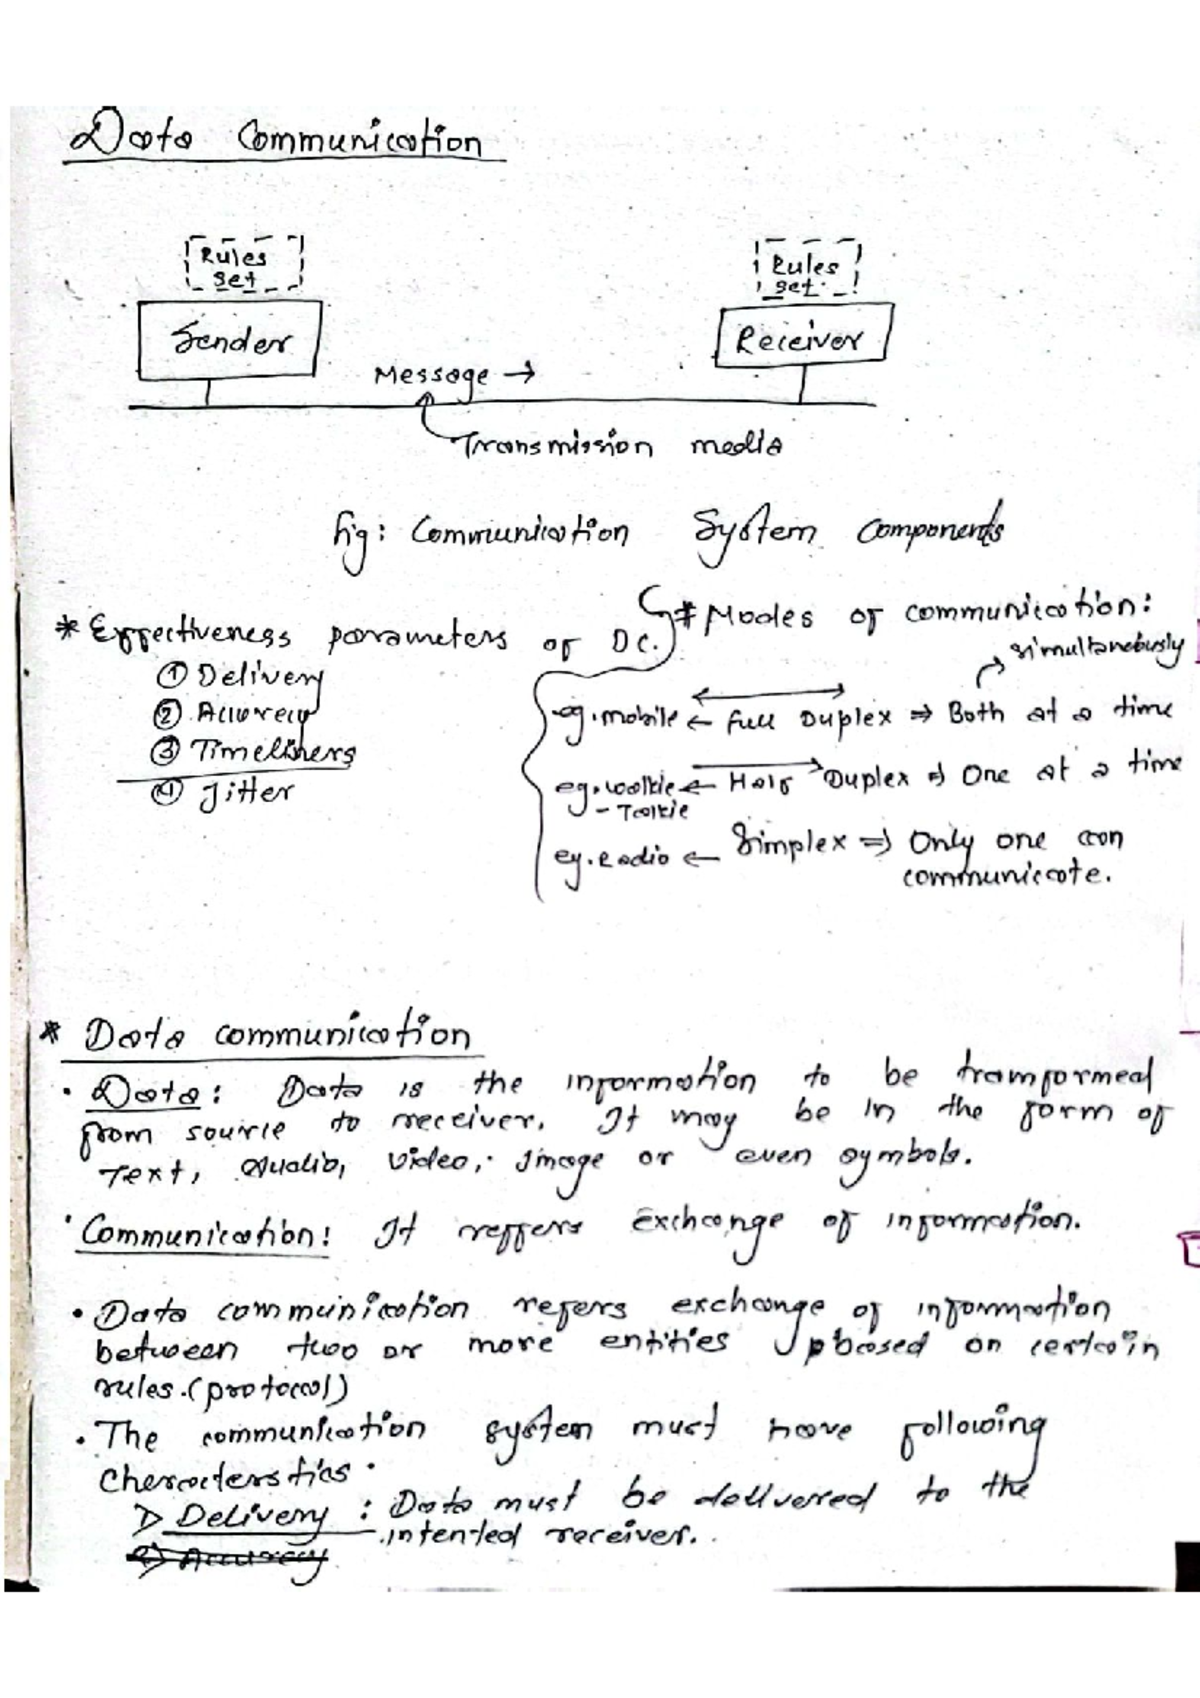 Data Communication
Rules
set
Rules
set
Sender
Receiver
Message →
Transmission media
fig: Communication System Components
* Effectiveness parameters of DC.
① Delivery
② Accurecy
③ Timeliners
④ Jitter
# Modes of communication:
simultaneously
eg. mobile ← Full Duplex ⇒ Both at a time
eg. walkie ← Half Duplex ⇒ One at a time
- Talkie
eg. Radio ← Simplex ⇒ Only one can
communicate.
* Data communication
• Data: Data is the information to be transformed
from source to receiver. It may be in the form of
Text, Audio, video, Image or even symbols.
• Communication: It reffers exchange of information.
• Data communication refers exchange of information
between two or more entities based on certain
rules. (protocol)
• The communication system must have following
Characterstics.
1> Delivery : Data must be delivered to the
intented receiver.
2) Accurecy